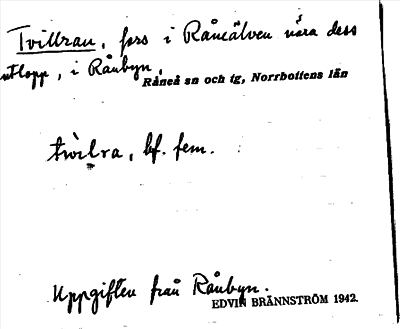 Tvillran, fors i Råneälven nära dess
utlopp, i Rånbyn,
Råneå sn och tg, Norrbottens län
bf. fem.
Uppgiften från Rånbyn.
EDVIN BRÄNNSTRÖM 1942.